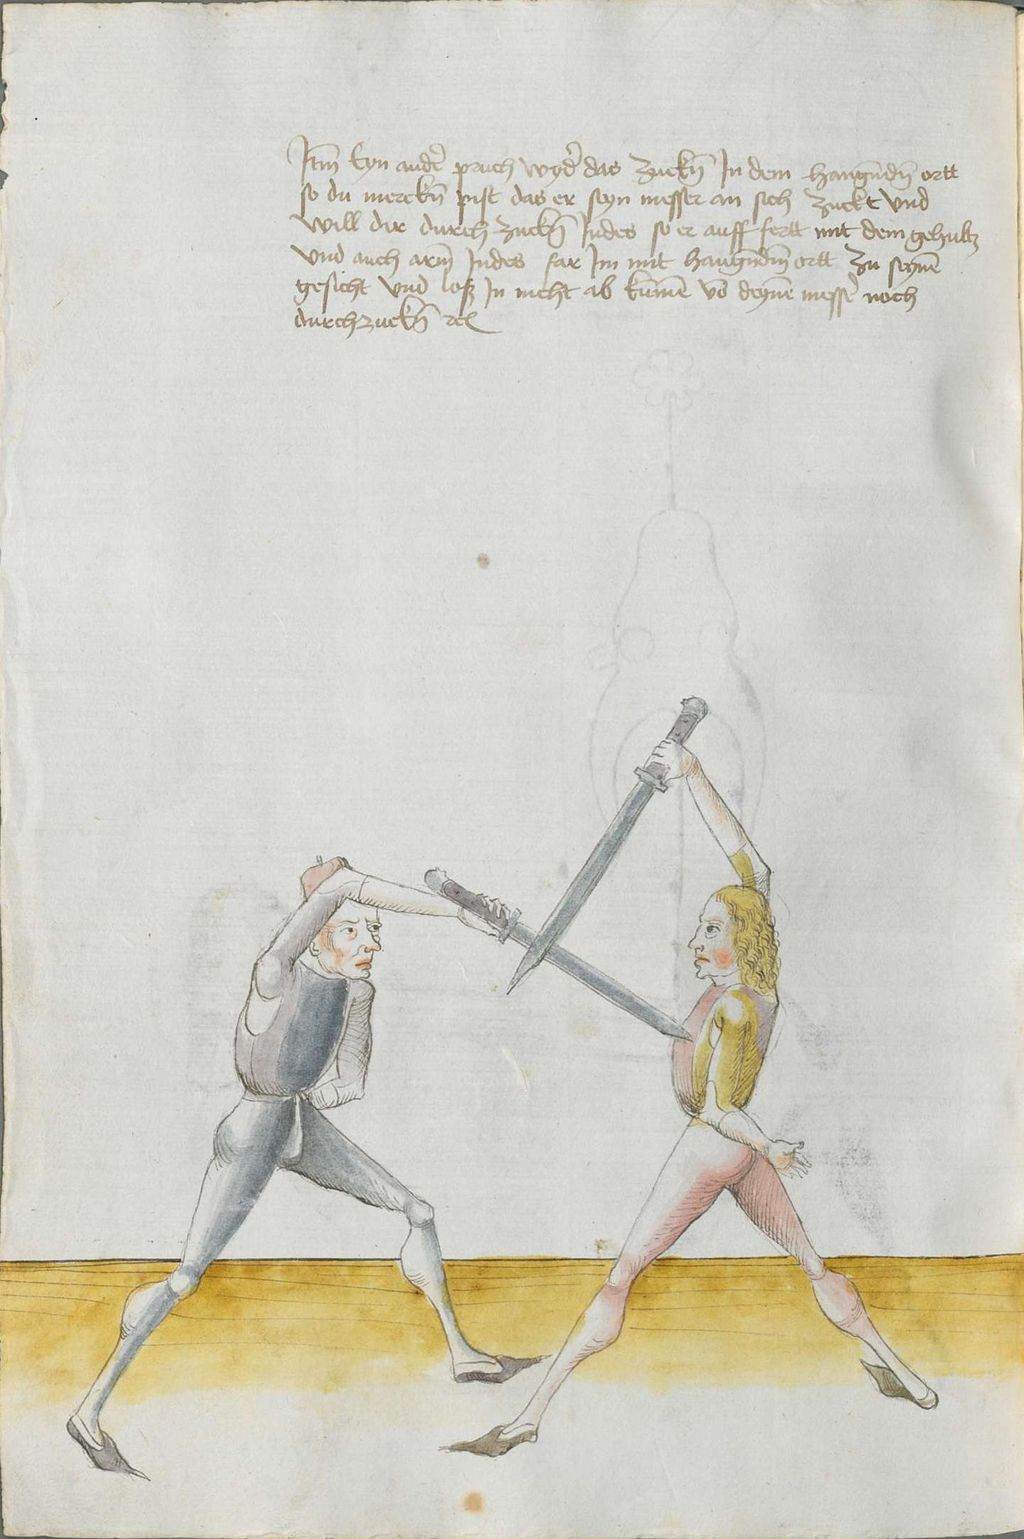 Itm̄ Eyn and̄ pruch wyd̄ das zuckn̄ In dem hangn̄dn̄ ortt
so du merckn̄ pist das er seyn messer an sich zuckt vnd
will dir durch zuckn̄ Indes so er auff fertt mit dem gehultz
vnd auch arm̄ Indes far Im mit hangn̄dm̄ ortt zu seynē
gesicht vnd loß In nicht ab kūmē vō deynē messr̄ noch
durchzuckn̄